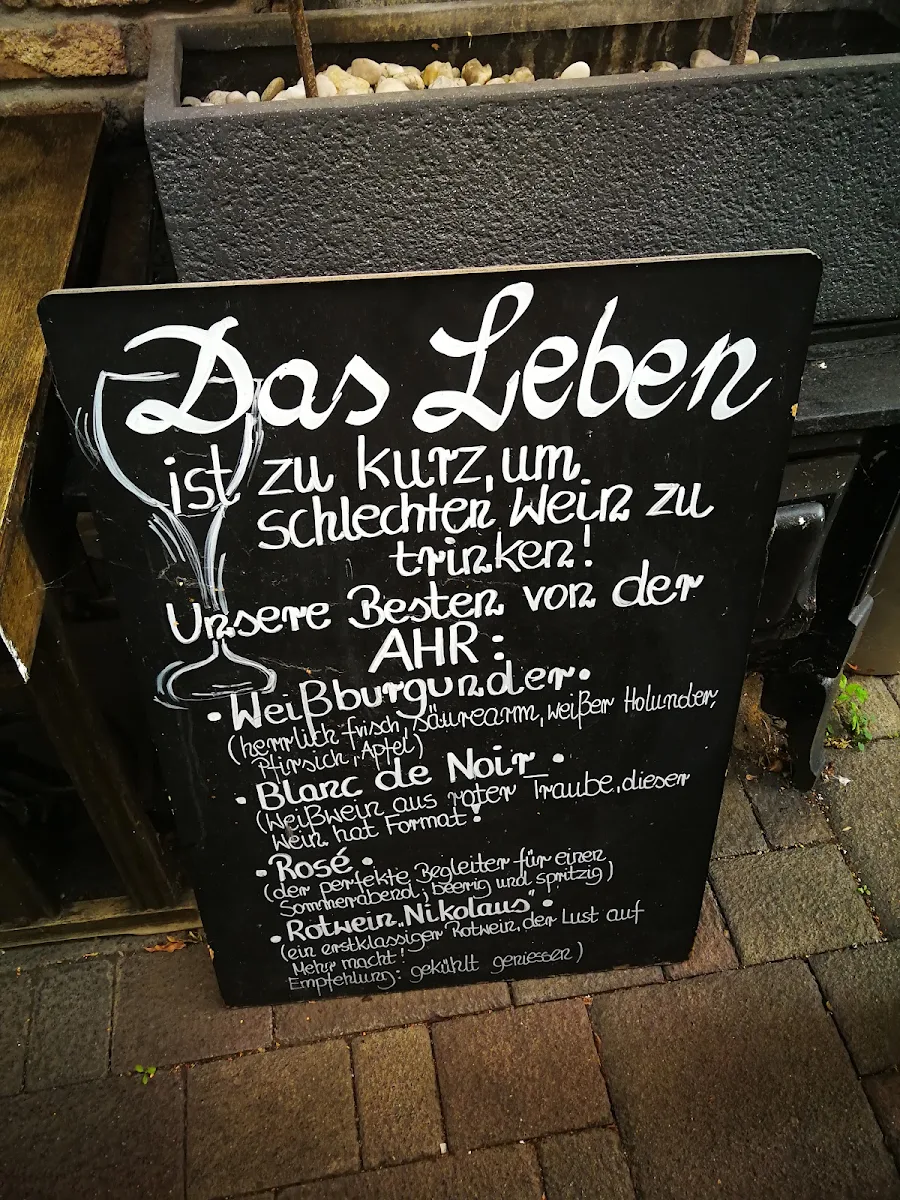 Das Leben
ist zu kurz, um
schlechten Wein zu
trinken!
Unsere Besten von der
AHR:
• Weißburgunder •
(herrlich frisch, säurearm, weißer Holunder,
Pfirsich, Apfel)
• Blanc de Noir •
(Weißwein aus roter Traube, dieser
Wein hat Format!
• Rosé •
(der perfekte Begleiter für einen
Sommerabend; beerig und spritzig)
• Rotwein „Nikolaus" •
(ein erstklassiger Rotwein, der Lust auf
Mehr macht!
Empfehlung: gekühlt geniessen)